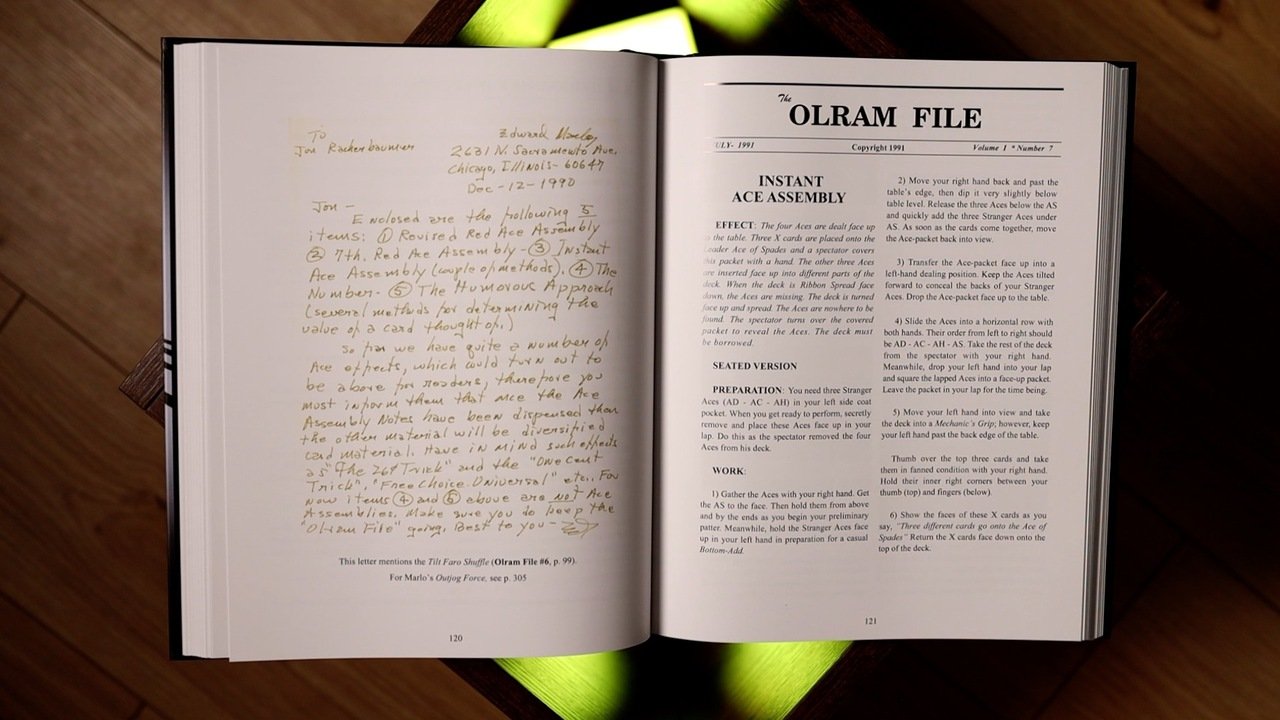 To
Jon Rackerbaumer
Edward Marlo
2631 N. Sacramento Ave.
Chicago, Illinois- 60647
Dec-12-1990
Jon -
Enclosed are the following 5
items: ① Revised Red Ace Assembly
② 7th. Red Ace Assembly - ③ Instant
Ace Assembly (couple of methods). ④ The
Number- ⑤ The Humorous Approach
(several methods for determining the
value of a card thought of.)
So far we have quite a number of
Ace effects, which could turn out to
be a bore for readers, therefore you
must inform them that once the Ace
Assembly Notes have been dispensed then
the other material will be diversified
card material. Have in mind such effects
as "The 26th Trick" and the "One Cent
Trick", "Free Choice Universal" etc.. For
now items ④ and ⑤ above are not Ace
Assemblies. Make sure you do keep the
"Olram File" going. Best to you -
This letter mentions the Tilt Faro Shuffle (Olram File #6, p. 99).
For Marlo's Outjog Force, see p. 305
120
The
OLRAM FILE
ULY- 1991 Copyright 1991 Volume 1 * Number 7
INSTANT
ACE ASSEMBLY
EFFECT: The four Aces are dealt face up
the table. Three X cards are placed onto the
Leader Ace of Spades and a spectator covers
this packet with a hand. The other three Aces
are inserted face up into different parts of the
deck. When the deck is Ribbon Spread face
down, the Aces are missing. The deck is turned
face up and spread. The Aces are nowhere to be
found. The spectator turns over the covered
packet to reveal the Aces. The deck must
be borrowed.
SEATED VERSION
PREPARATION: You need three Stranger
Aces (AD - AC - AH) in your left side coat
pocket. When you get ready to perform, secretly
remove and place these Aces face up in your
lap. Do this as the spectator removed the four
Aces from his deck.
WORK:
1) Gather the Aces with your right hand. Get
the AS to the face. Then hold them from above
and by the ends as you begin your preliminary
patter. Meanwhile, hold the Stranger Aces face
up in your left hand in preparation for a casual
Bottom-Add.
2) Move your right hand back and past the
table's edge, then dip it very slightly below
table level. Release the three Aces below the AS
and quickly add the three Stranger Aces under
AS. As soon as the cards come together, move
the Ace-packet back into view.
3) Transfer the Ace-packet face up into a
left-hand dealing position. Keep the Aces tilted
forward to conceal the backs of your Stranger
Aces. Drop the Ace-packet face up to the table.
4) Slide the Aces into a horizontal row with
both hands. Their order from left to right should
be AD - AC - AH - AS. Take the rest of the deck
from the spectator with your right hand.
Meanwhile, drop your left hand into your lap
and square the lapped Aces into a face-up packet.
Leave the packet in your lap for the time being.
5) Move your left hand into view and take
the deck into a Mechanic's Grip; however, keep
your left hand past the back edge of the table.
Thumb over the top three cards and take
them in fanned condition with your right hand.
Hold their inner right corners between your
thumb (top) and fingers (below).
6) Show the faces of these X cards as you
say, "Three different cards go onto the Ace of
Spades" Return the X cards face down onto the
top of the deck.
121